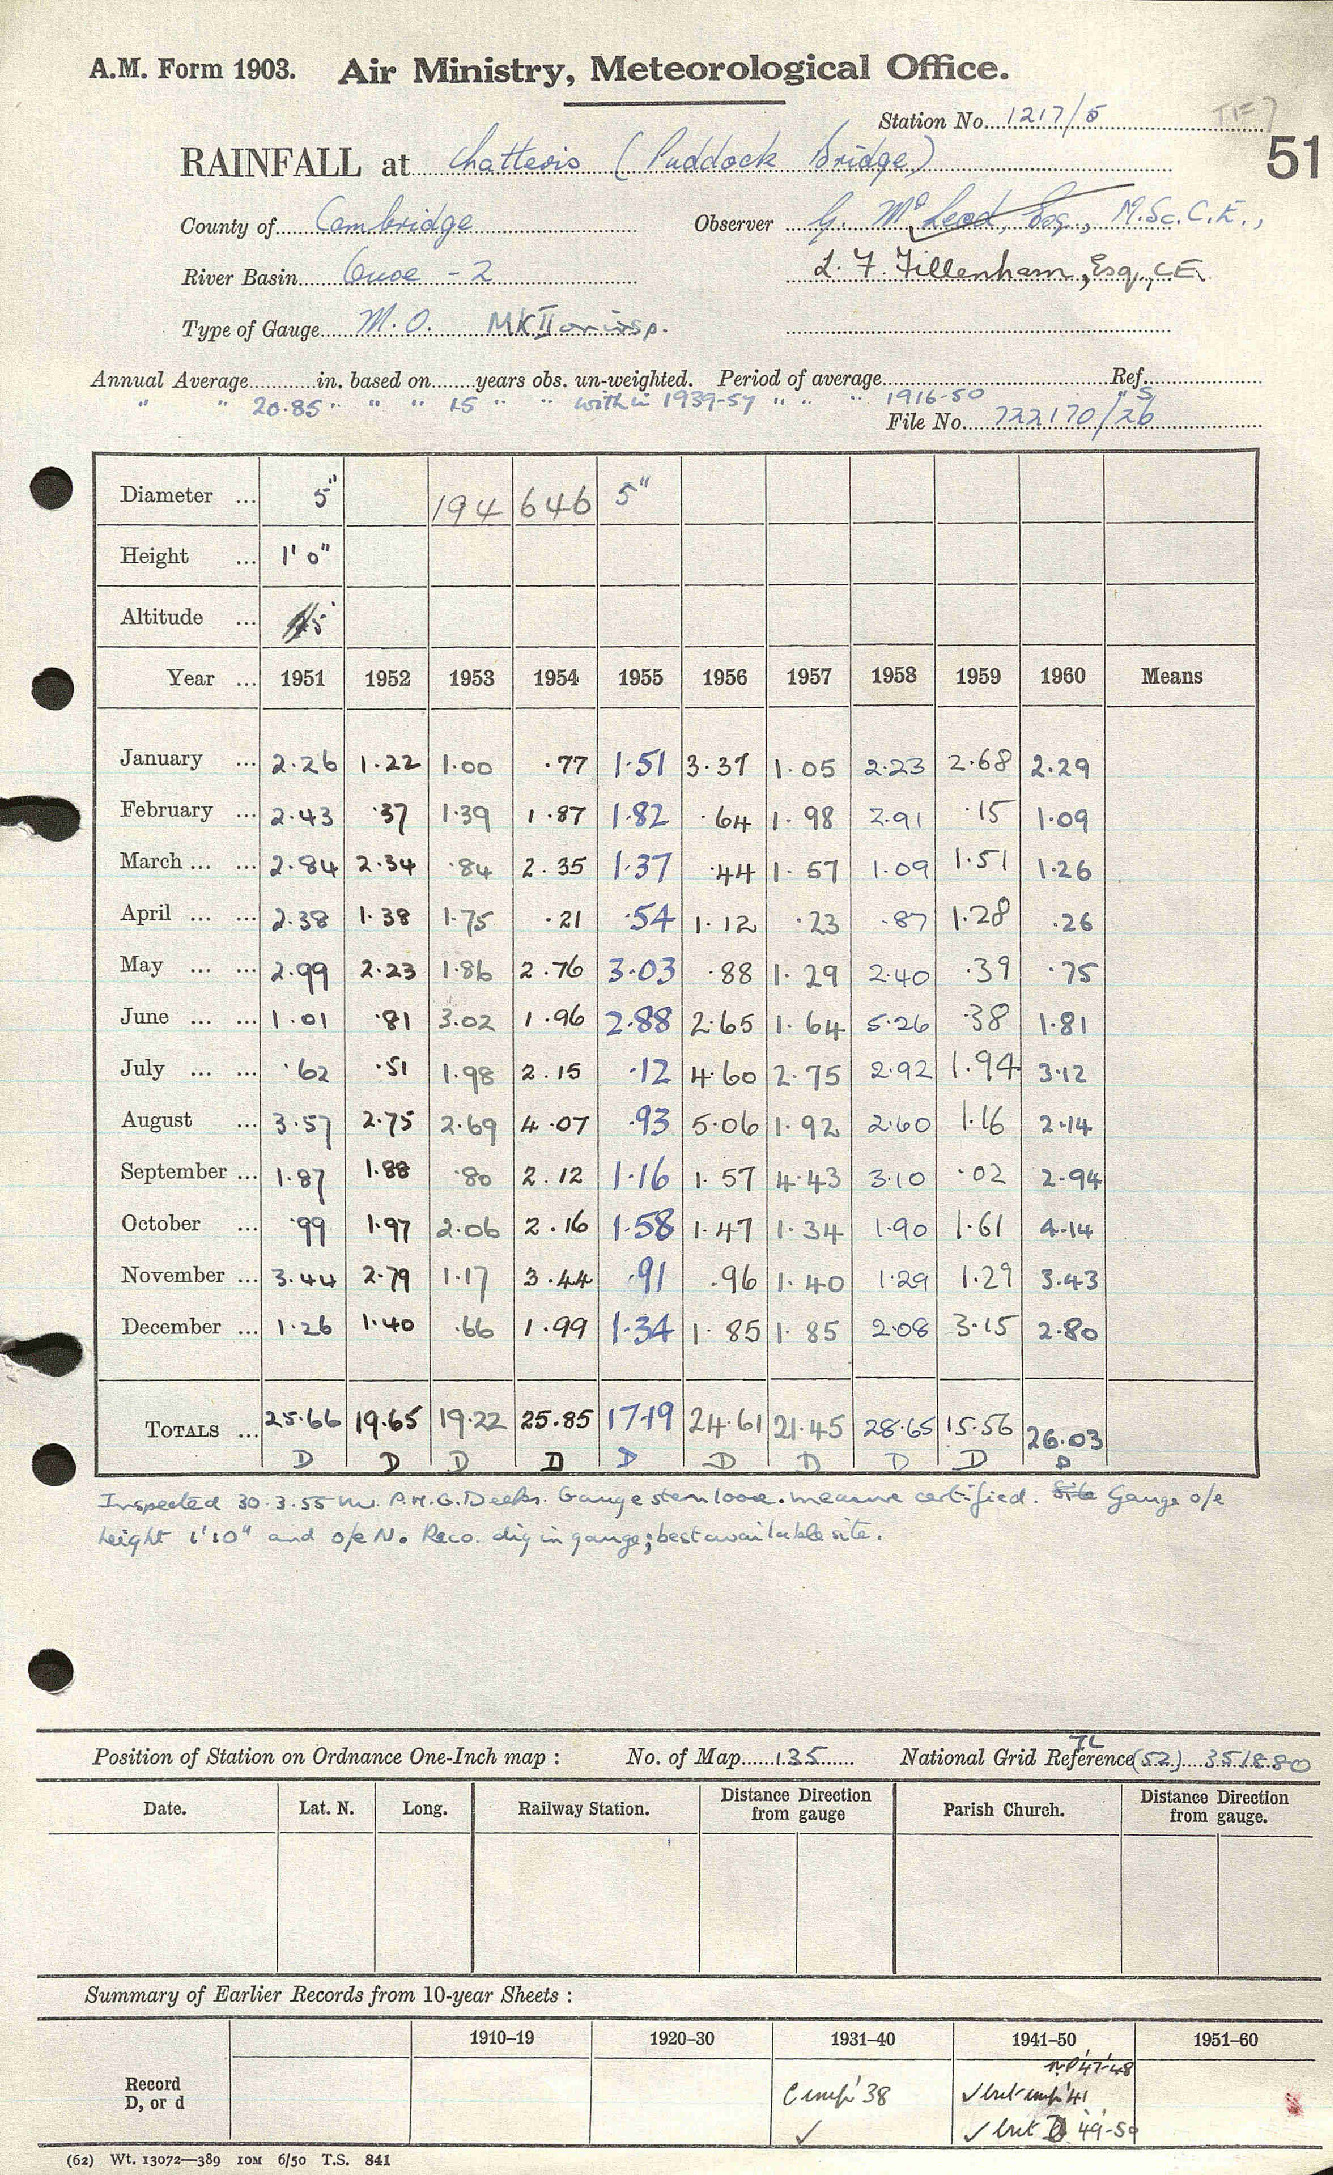 A.M. Form 1903. Air Ministry, Meteorological Office.
Station No. 1217/5
51
RAINFALL at Chatteris (Puddock Bridge)
County of Cambridge Observer G. McLeod, Esq., M.Sc.C.E.,
River Basin Ouse - 2 L. F. Fillenham, Esq., C.E.
Type of Gauge M.O. MK II on insp.
Annual Average in. based on years obs. un-weighted. Period of average Ref.
" " 20.85 " " " 15 " " within 1939-57 " " " 1916-50 "S
File No. 722170/26
Diameter ... 5" 194 646 5"
Height ... 1' 0"
Altitude ... 5'
Year ... 1951 1952 1953 1954 1955 1956 1957 1958 1959 1960 Means
January ... 2.26 1.22 1.00 .77 1.51 3.37 1.05 2.23 2.68 2.29
February ... 2.43 .37 1.39 1.87 1.82 .64 1.98 2.91 .15 1.09
March ... ... 2.84 2.34 .84 2.35 1.37 .44 1.57 1.09 1.51 1.26
April ... ... 2.38 1.38 1.75 .21 .54 1.12 .23 .87 1.28 .26
May ... ... 2.99 2.23 1.86 2.76 3.03 .88 1.29 2.40 .39 .75
June ... ... 1.01 .81 3.02 1.96 2.88 2.65 1.64 5.26 .38 1.81
July ... ... .62 .51 1.98 2.15 .12 4.60 2.75 2.92 1.94 3.12
August ... 3.57 2.75 2.69 4.07 .93 5.06 1.92 2.60 1.16 2.14
September ... 1.87 1.88 .80 2.12 1.16 1.57 4.43 3.10 .02 2.94
October ... .99 1.97 2.06 2.16 1.58 1.47 1.34 1.90 1.61 4.14
November ... 3.44 2.79 1.17 3.44 .91 .96 1.40 1.29 1.29 3.43
December ... 1.26 1.40 .66 1.99 1.34 1.85 1.85 2.08 3.15 2.80
TOTALS ... 25.66 19.65 19.22 25.85 17.19 24.61 21.45 28.65 15.56 26.03
D D D D D D D D D D
Inspected 30.3.55 Mr. P.H.G. Deeks. Gauge stem loose. measure certified. Site Gauge o/e
height 1'10" and o/e N. Reco. dig in gauge; best available site.
Position of Station on Ordnance One-Inch map : No. of Map 135 National Grid Reference TL (52) 351880
Date. Lat. N. Long. Railway Station. Distance Direction from gauge Parish Church. Distance Direction from gauge.
Summary of Earlier Records from 10-year Sheets :
1910–19 1920–30 1931–40 1941–50 1951–60
'47-48
Record '38 ✓ but '41
D, or d ✓ ✓ but D '49-50
(62) Wt. 13072—389 10M 6/50 T.S. 841